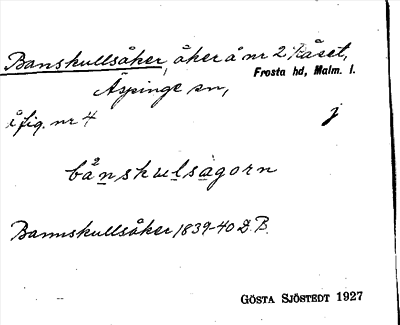 Banskullsåker, åker å nr 2 Råset,
Frosta hd, Malm. l.
Äspinge sn,
å fig. nr 4 j
bå2nskulsagorn
Bannskullsåker 1839-40 D.B.
GÖSTA SJÖSTEDT 1927